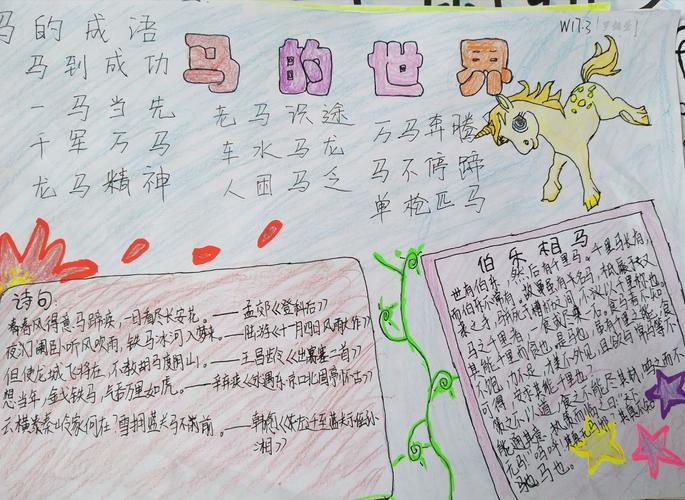 马的成语
马的世界
W17.3
马到成功
一马当先
老马识途
万马奔腾
千军万马
车水马龙
马不停蹄
龙马精神
人困马乏
单枪匹马
诗句:
春风得意马蹄疾,一日看尽长安花。——孟郊《登科后》
夜阑卧听风吹雨,铁马冰河入梦来。——陆游《十一月四日风雨大作》
但使龙城飞将在,不教胡马度阴山。——王昌龄《出塞二首》
想当年,金戈铁马,气吞万里如虎。——辛弃疾《永遇乐·京口北固亭怀古》
云横秦岭家何在?雪拥蓝关马不前。——韩愈《左迁至蓝关示侄孙
湘》
伯乐相马
世有伯乐,然后有千里马。千里马长有,
而伯乐不常有。故虽有名马,祇辱于奴
隶之手,骈死于槽枥之间,不以千里称也。
马之千里者,一食或尽粟一石。食马者不知
其能千里而食也。是马也,虽有千里之能,食
不饱,力不足,才美不外见,且欲与常马等不
可得,安求其能千里也。
策之不以其道,食之不能尽其材,鸣之而不
能通其意,执策而临之曰:“天下
无马!”呜呼!其真无马邪?其真不知
马也。